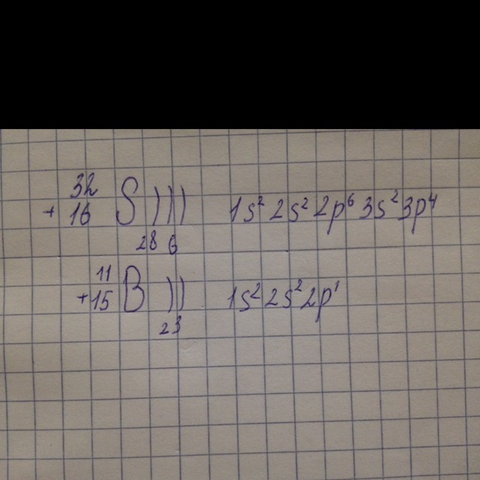 32
+ 16 S ))) 1s² 2s² 2p⁶ 3s² 3p⁴
2 8 6
11
+15 B )) 1s² 2s² 2p¹
2 3